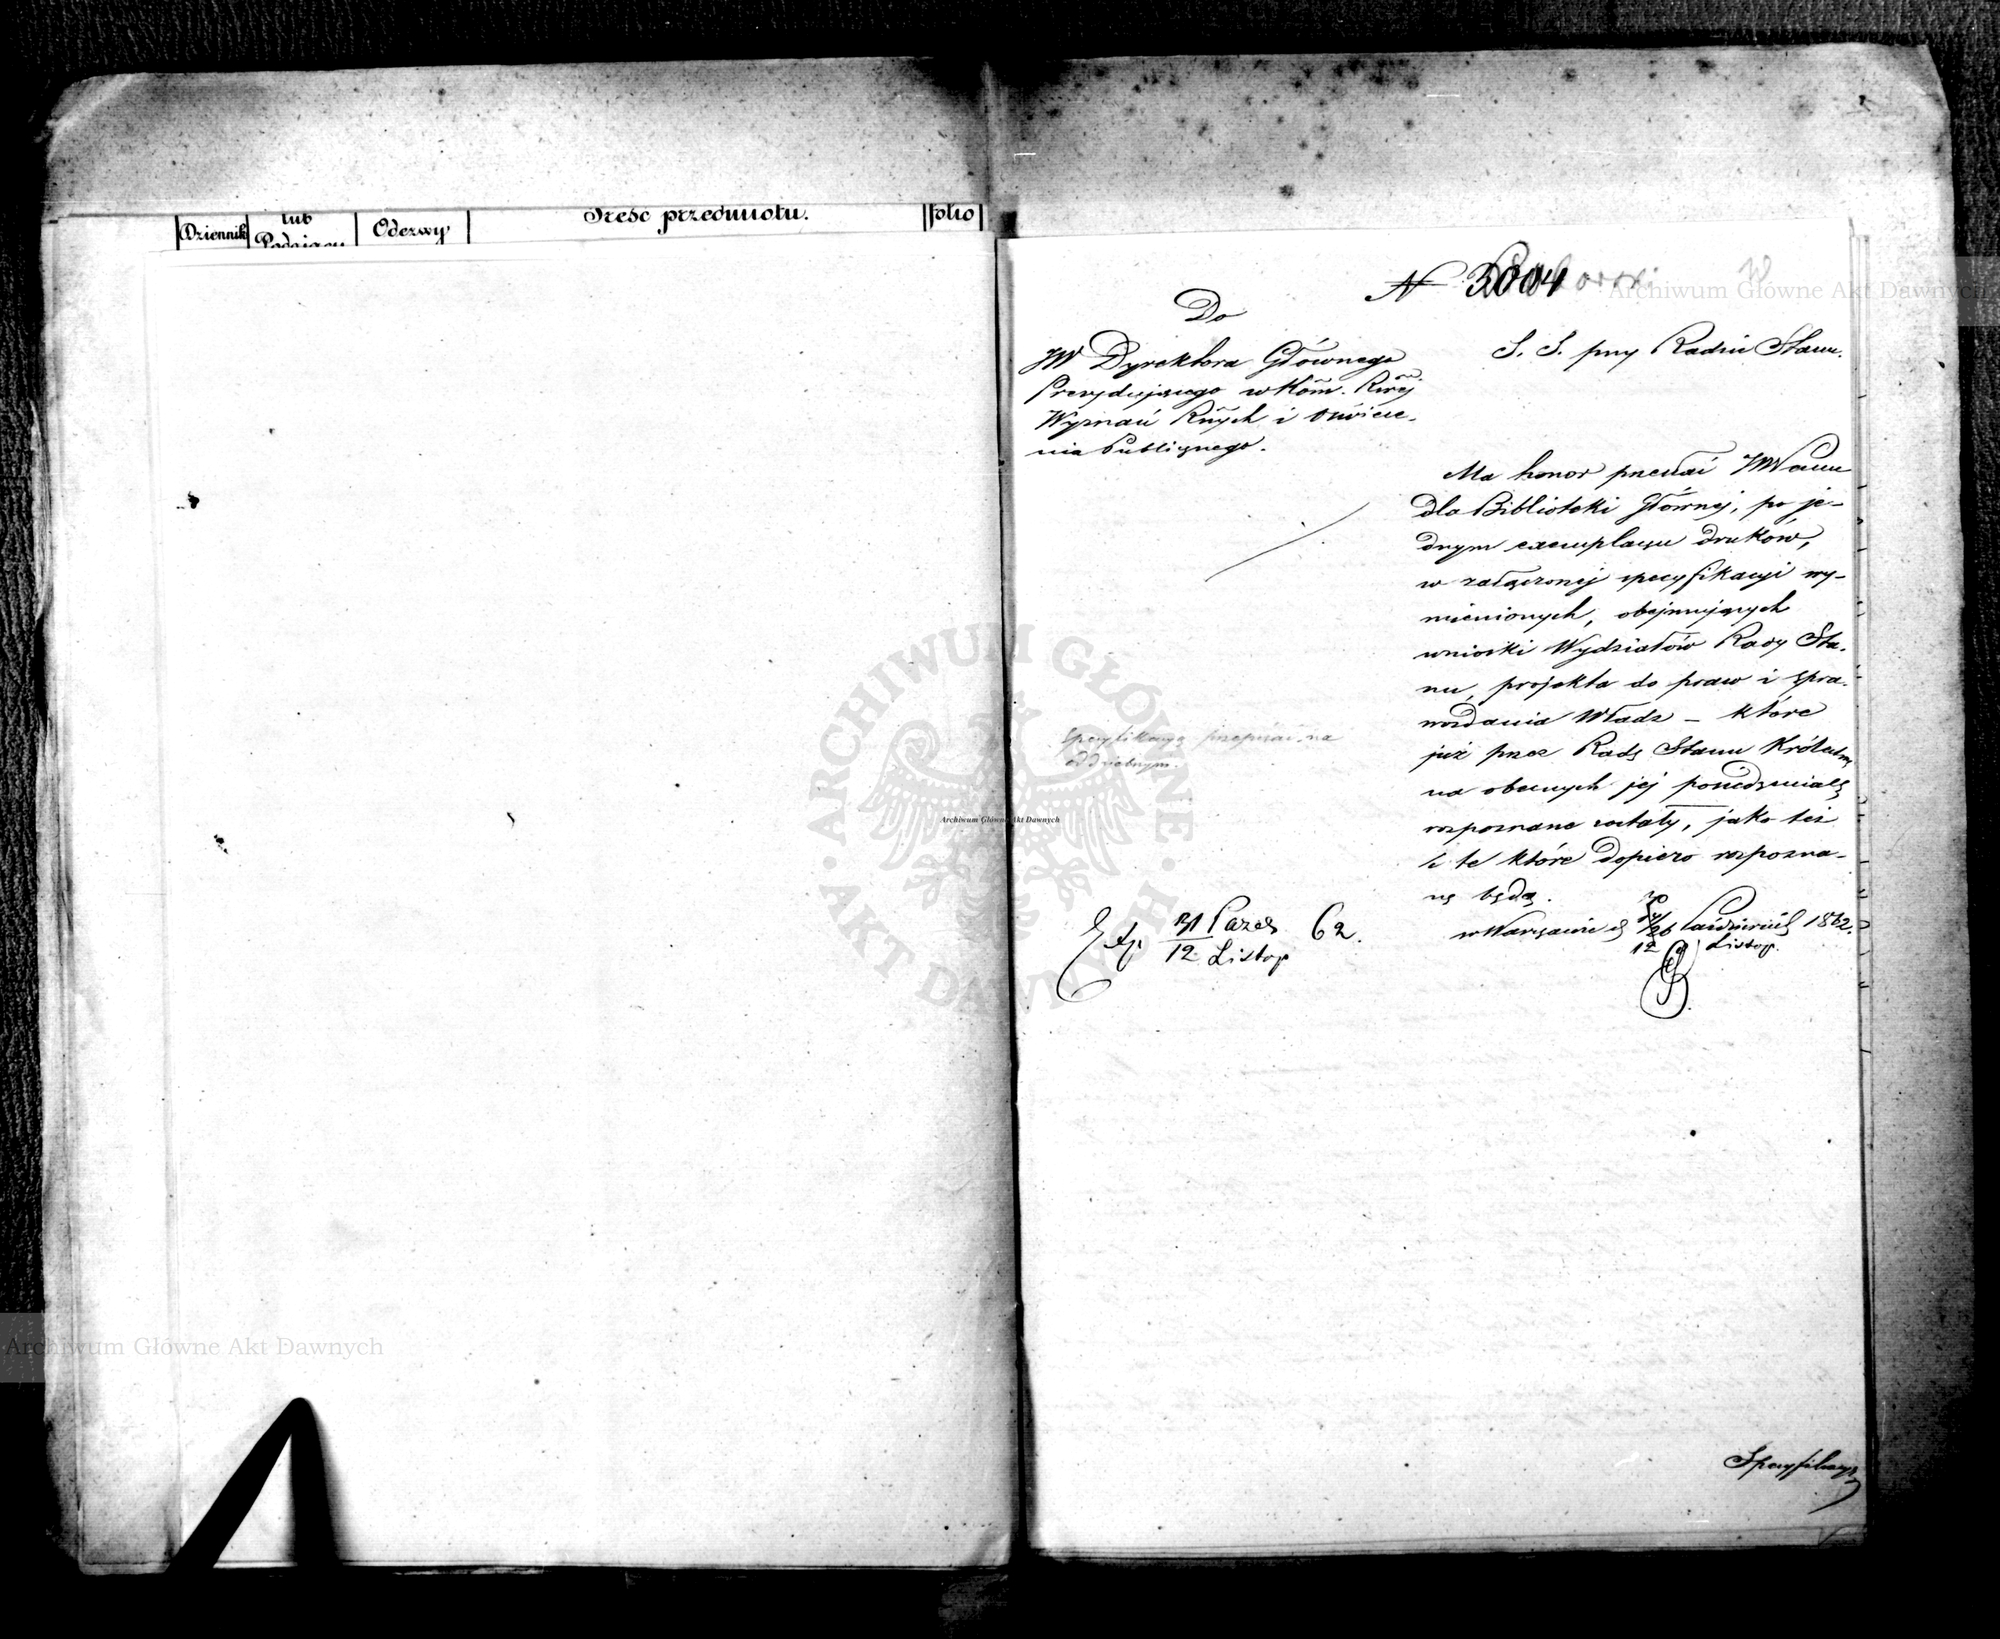 Dziennik
lub
Podający
Odezwy
Treść przedmiotu.
folio
N 3004
Do
JW Dyrektora Głównego
Prezydującego w Kom. Rzrej
Wyznań Rnych i Oświece-
nia Publicznego.
S. S. przy Radzie Stanu.
Ma honor przesłać JWPanu
dla Biblioteki Głównej, po je-
dnym exemplarzu druków,
w załączonej specyfikacyi wy-
mienionych, obejmujących
wnioski Wydziałów Rady Sta-
nu, projekta do praw i spra-
wozdania Władz – które
już przez Radę Stanu Królestwa
na obecnych jej posiedzeniach
rozpoznane zostały, jako też
i te które dopiero rozpozna-
ne będą.
w Warszawie d 26 Październik 1862.
12 Listop.
Specyfikacyą przepisać na
oddzielnym.
Exp 31 Paźdz 62.
12 Listop
Specyfikacya
ARCHIWUM GŁÓWNE AKT DAWNYCH
Archiwum Główne Akt Dawnych
Archiwum Główne Akt Dawnych
Archiwum Główne Akt Dawnych